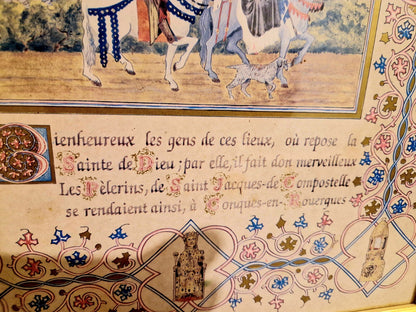 Bienheureux les gens de ces lieux, où repose la
Sainte de Dieu; par elle, il fait don merveilleux
Les Pèlerins, de Saint Jacques-de Compostelle
se rendaient ainsi, à Conques-en-Rouergues